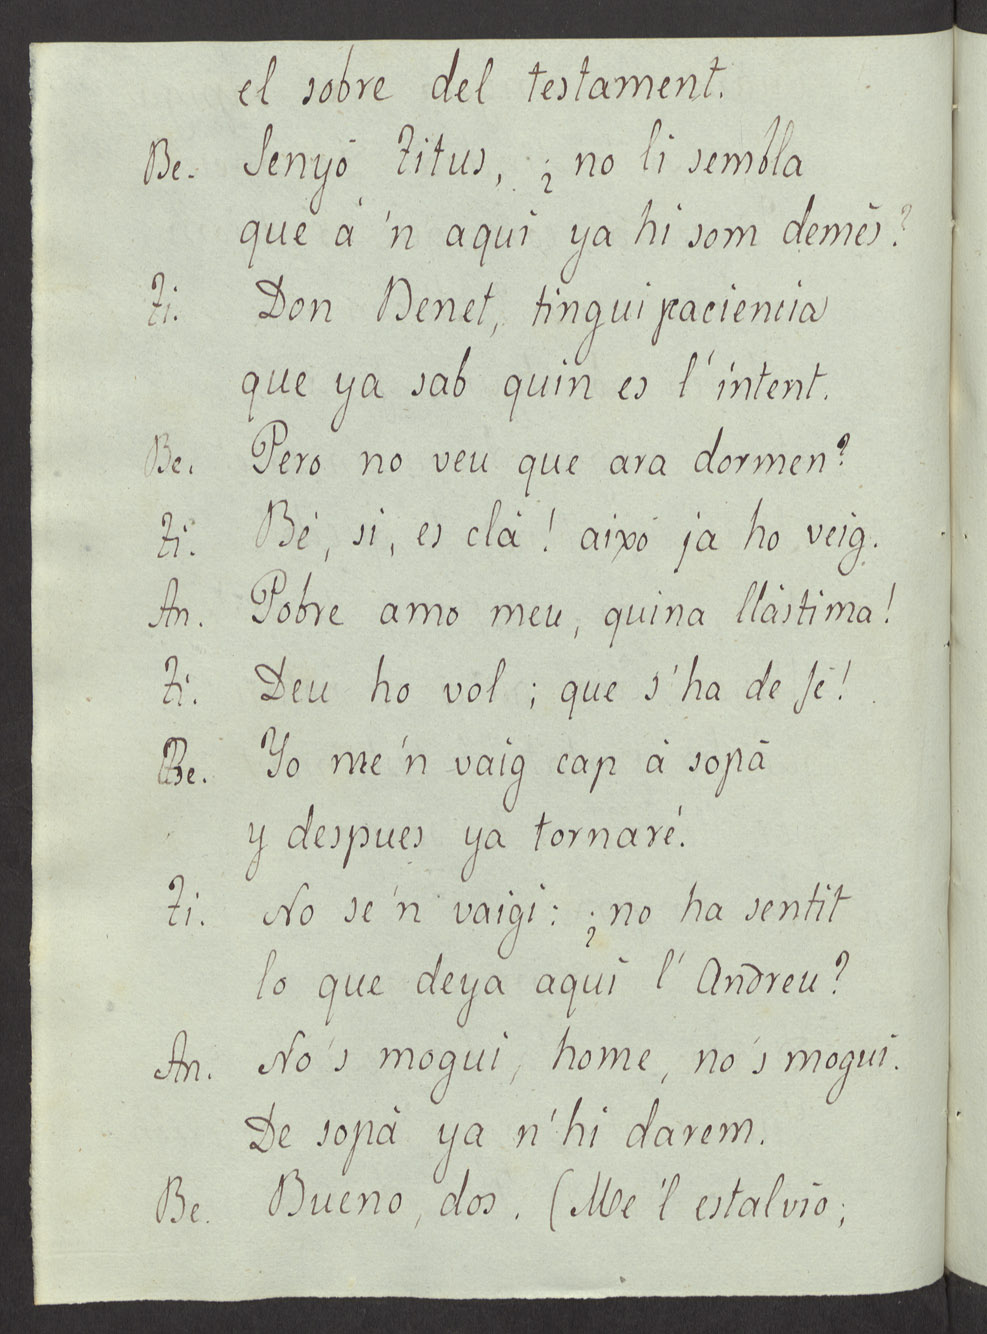 el sobre del testament.
Be. Senyó Titus, ¿no li sembla
que á 'n aquí ya hi som demés?
Ti. Don Benet, tingui paciencia
que ya sab quin es l'intent.
Be. Pero no veu que ara dormen?
Ti. Bé, si, es clá! aixó ja ho veig.
An. Pobre amo meu, quina llástima!
Ti. Deu ho vol; que s'ha de fé!
Be. Yo me'n vaig cap á sopá
y despues ya tornaré.
Ti. No se'n vaigi: ¿no ha sentit
lo que deya aquí l'Andreu?
An. No's mogui, home, no's mogui.
De sopá ya n'hi darem.
Be. Bueno, dos. (Me'l estalvío;